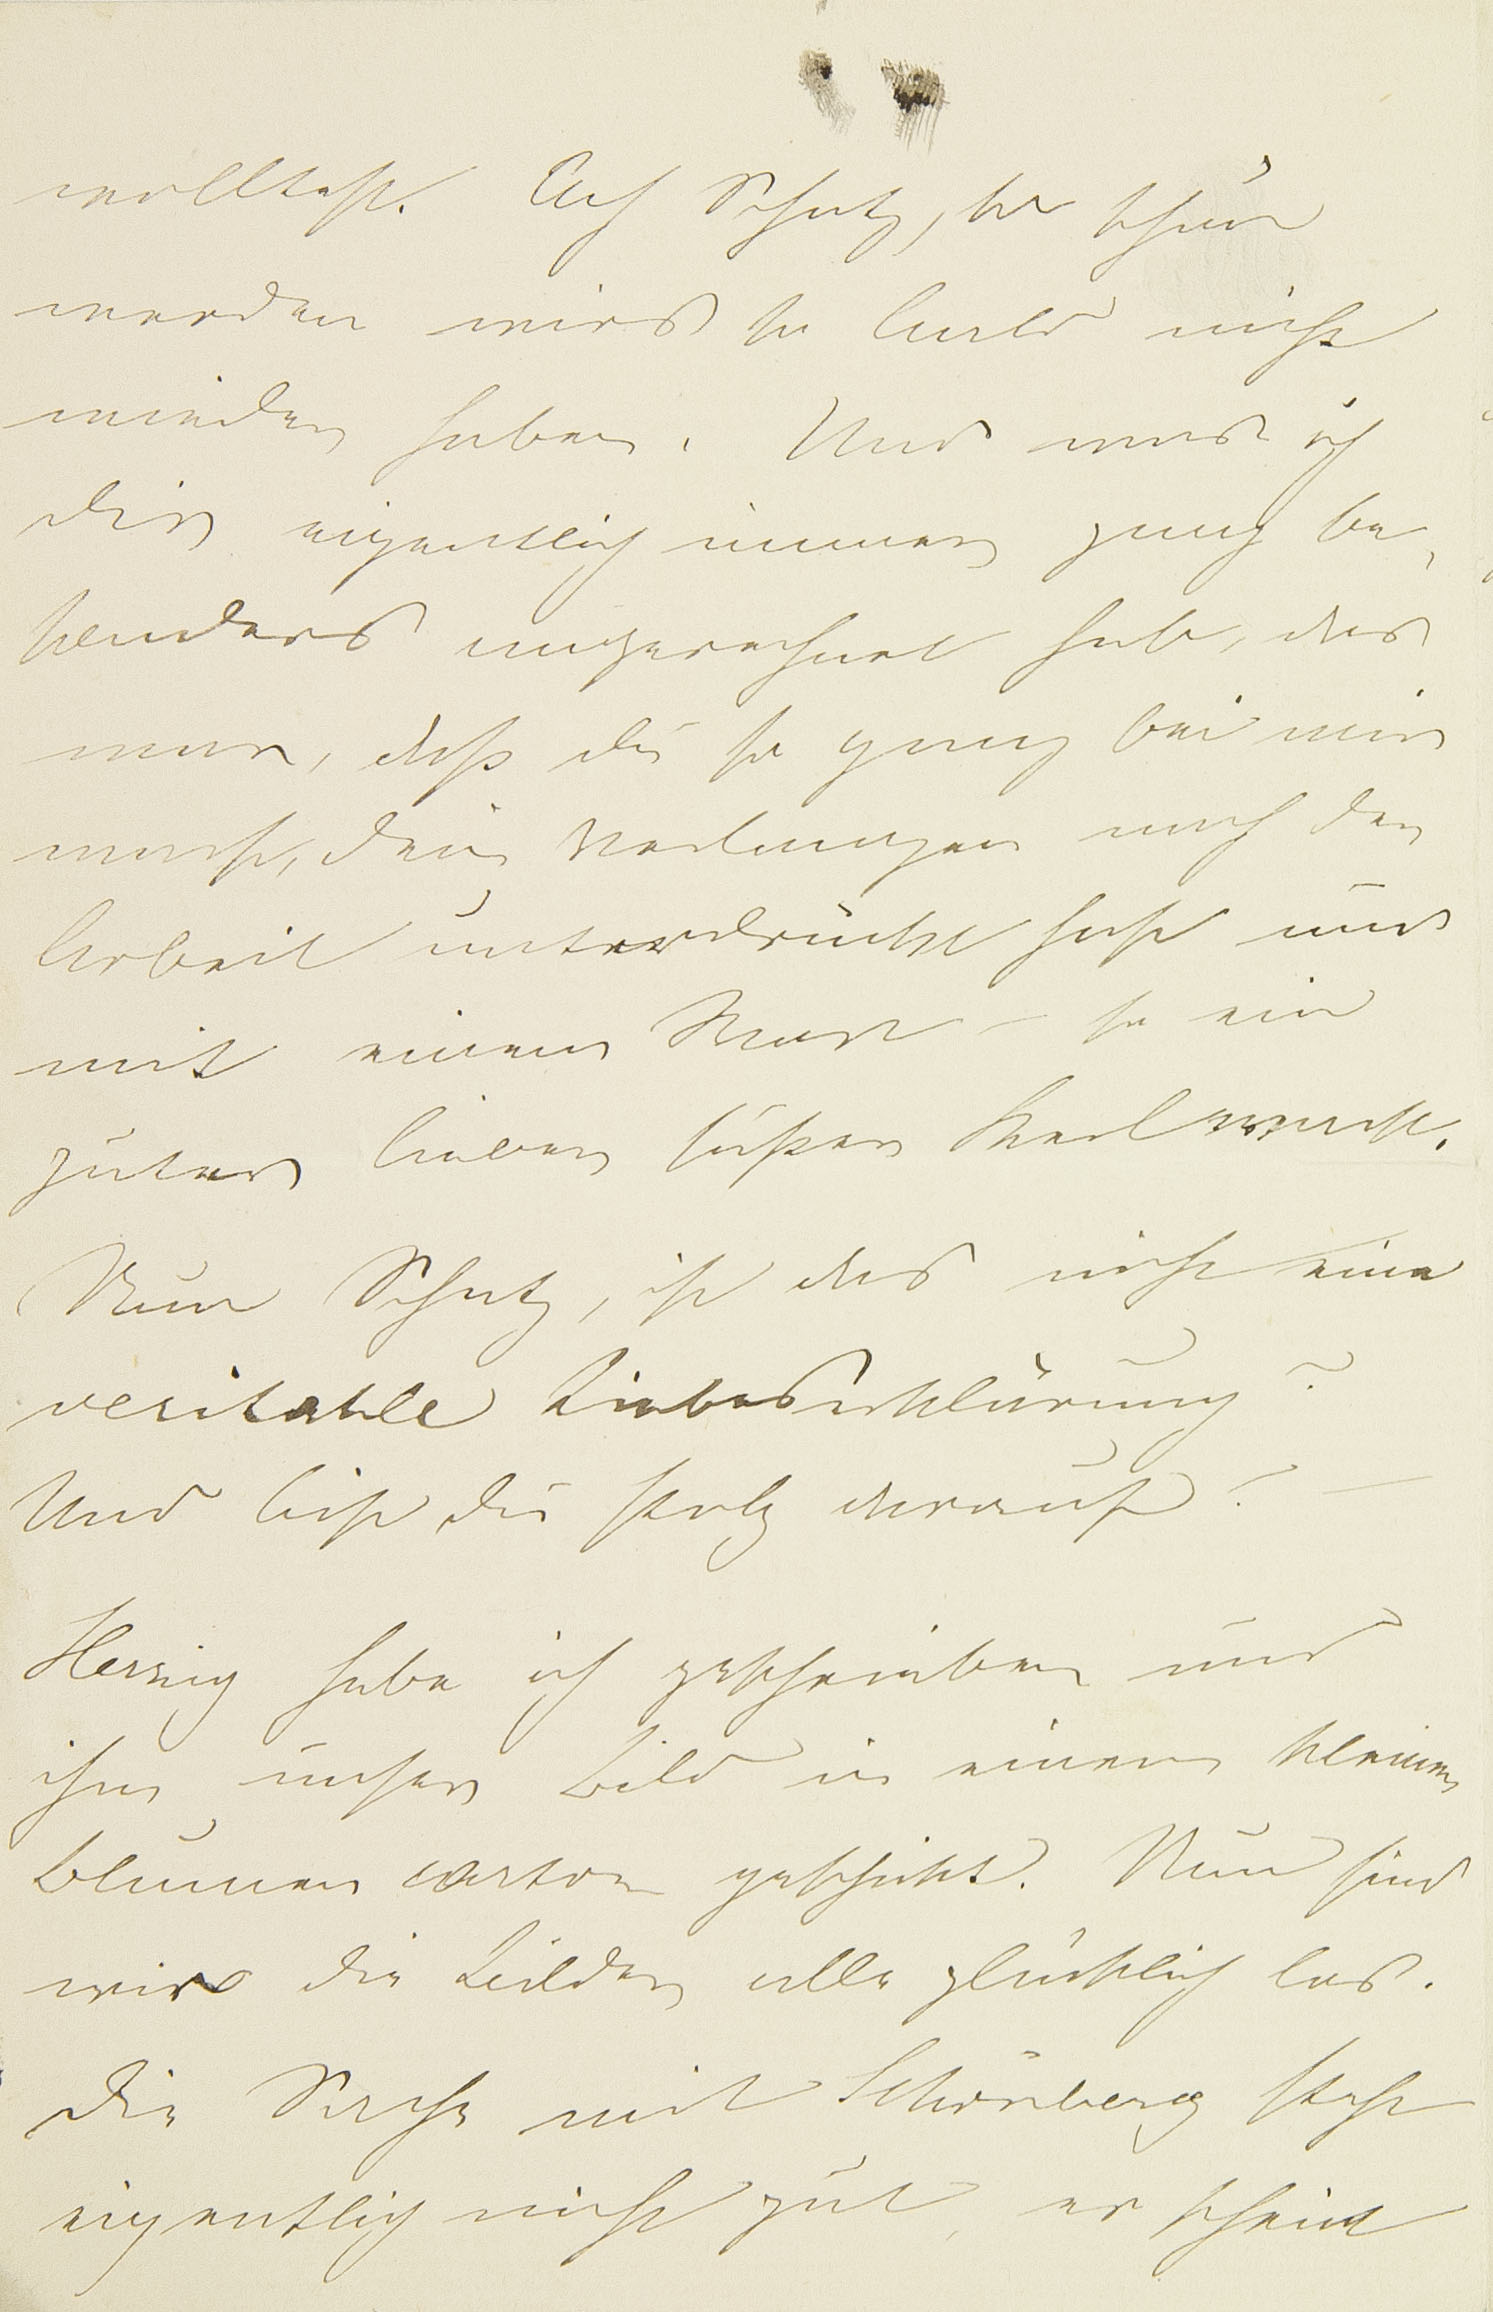 wolltest. Ach Schatz, so schön
werden wirs so bald nicht
wieder haben. Und was ich
dir eigentlich immer ganz be-
sonders angerechnet hab, das
war, daß du so ganz bei mir
warst, dein Verlangen nach der
Arbeit unterdrückt hast und
mit einem Wort – so ein
guter lieber süßer Kerl warst.
Nun Schatz, ist das nicht eine
veritable Liebeserklärung?
Und bist du stolz darauf? –
Herzig habe ich geschrieben und
ihm unser Bild in einem kleinen
Blumencarton geschickt. Nun sind
wir die Bilder alle glücklich los.
Die Sache mit Schönberg steht
eigentlich nicht gut, er scheint